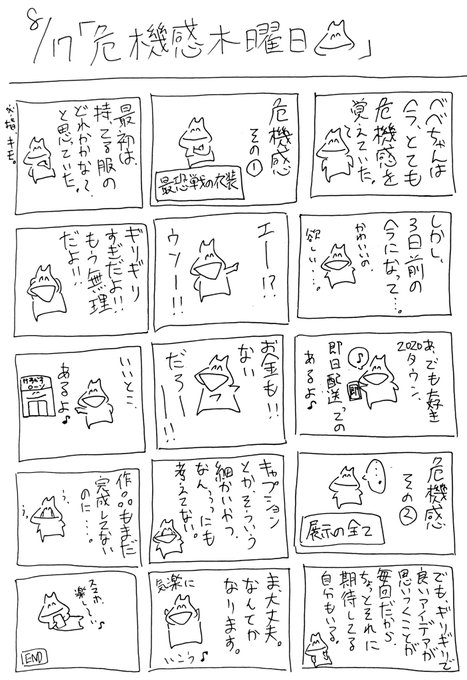 8/17「危機感木曜日」
べべちゃんは
今、とても
危機感を
覚えていた。
危機感
その①
最恐戦の衣装
最初は、
持てる服の
どれかかな?
と思っていた。
しかし、
3日前の
今になって…。
かわいいの
欲しい…。
エー!?
ウソー!!
ギリギリ
すぎだよ!!
もう無理
だよ!!
あ、でも好き
2020
タウン、
即日配送っての
あるよ♪
即
お金も!!
ない
だろーー!!
いいとこ
あるよ♪
ローン
危機感
その②
展示の全て
キャプション
とかそういう
細かいやつ、
なんっっにも
考えてない。
作品もまだ
完成してない
のに…。
でも、ギリギリで
良いアイデアが
思いつくことが
毎回だから、
ちょっとそれに
期待してる
自分もいる。
ま、大丈夫。
なんとか
なります。
気楽に
いこう♪
スマホ、
楽し〜。
END